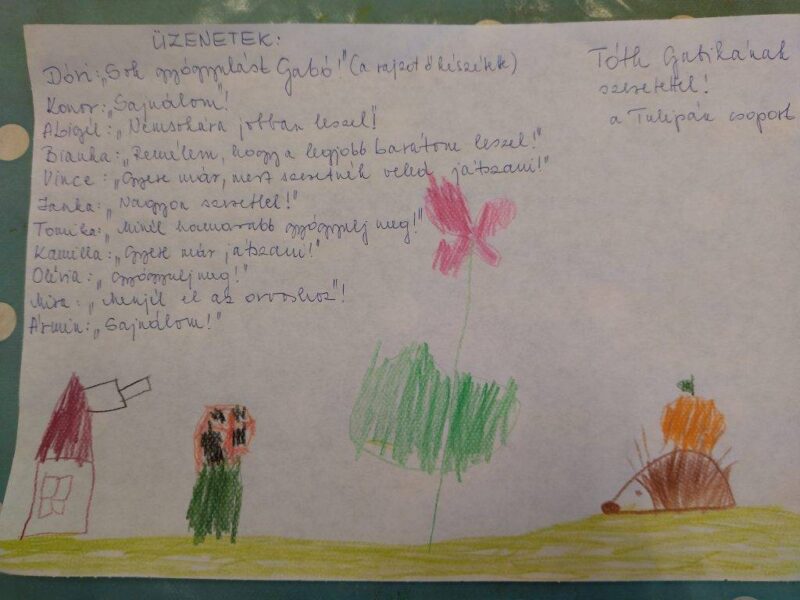 ÜZENETEK:
Dóri: „Sok gyógyulást Gabó!" (a rajzot ő készítette)
Konor: „Sajnálom"!
Abigél: „Nemsokára jobban leszel!
Bianka: „Remélem, hogy a legjobb barátom leszel!"
Vince: „Gyere már, mert szeretnék veled játszani!"
Janka: „Nagyon szeretlel!"
Tomika: „Minél hamarabb gyógyulj meg!"
Kamilla: „Gyere már játszani!"
Olívia: „Gyógyulj meg!"
Mira: „Menjél el az orvoshoz"!
Ármin: „Sajnálom!"
Tóth Gabikának
szeretettel!
a Tulipán csoport